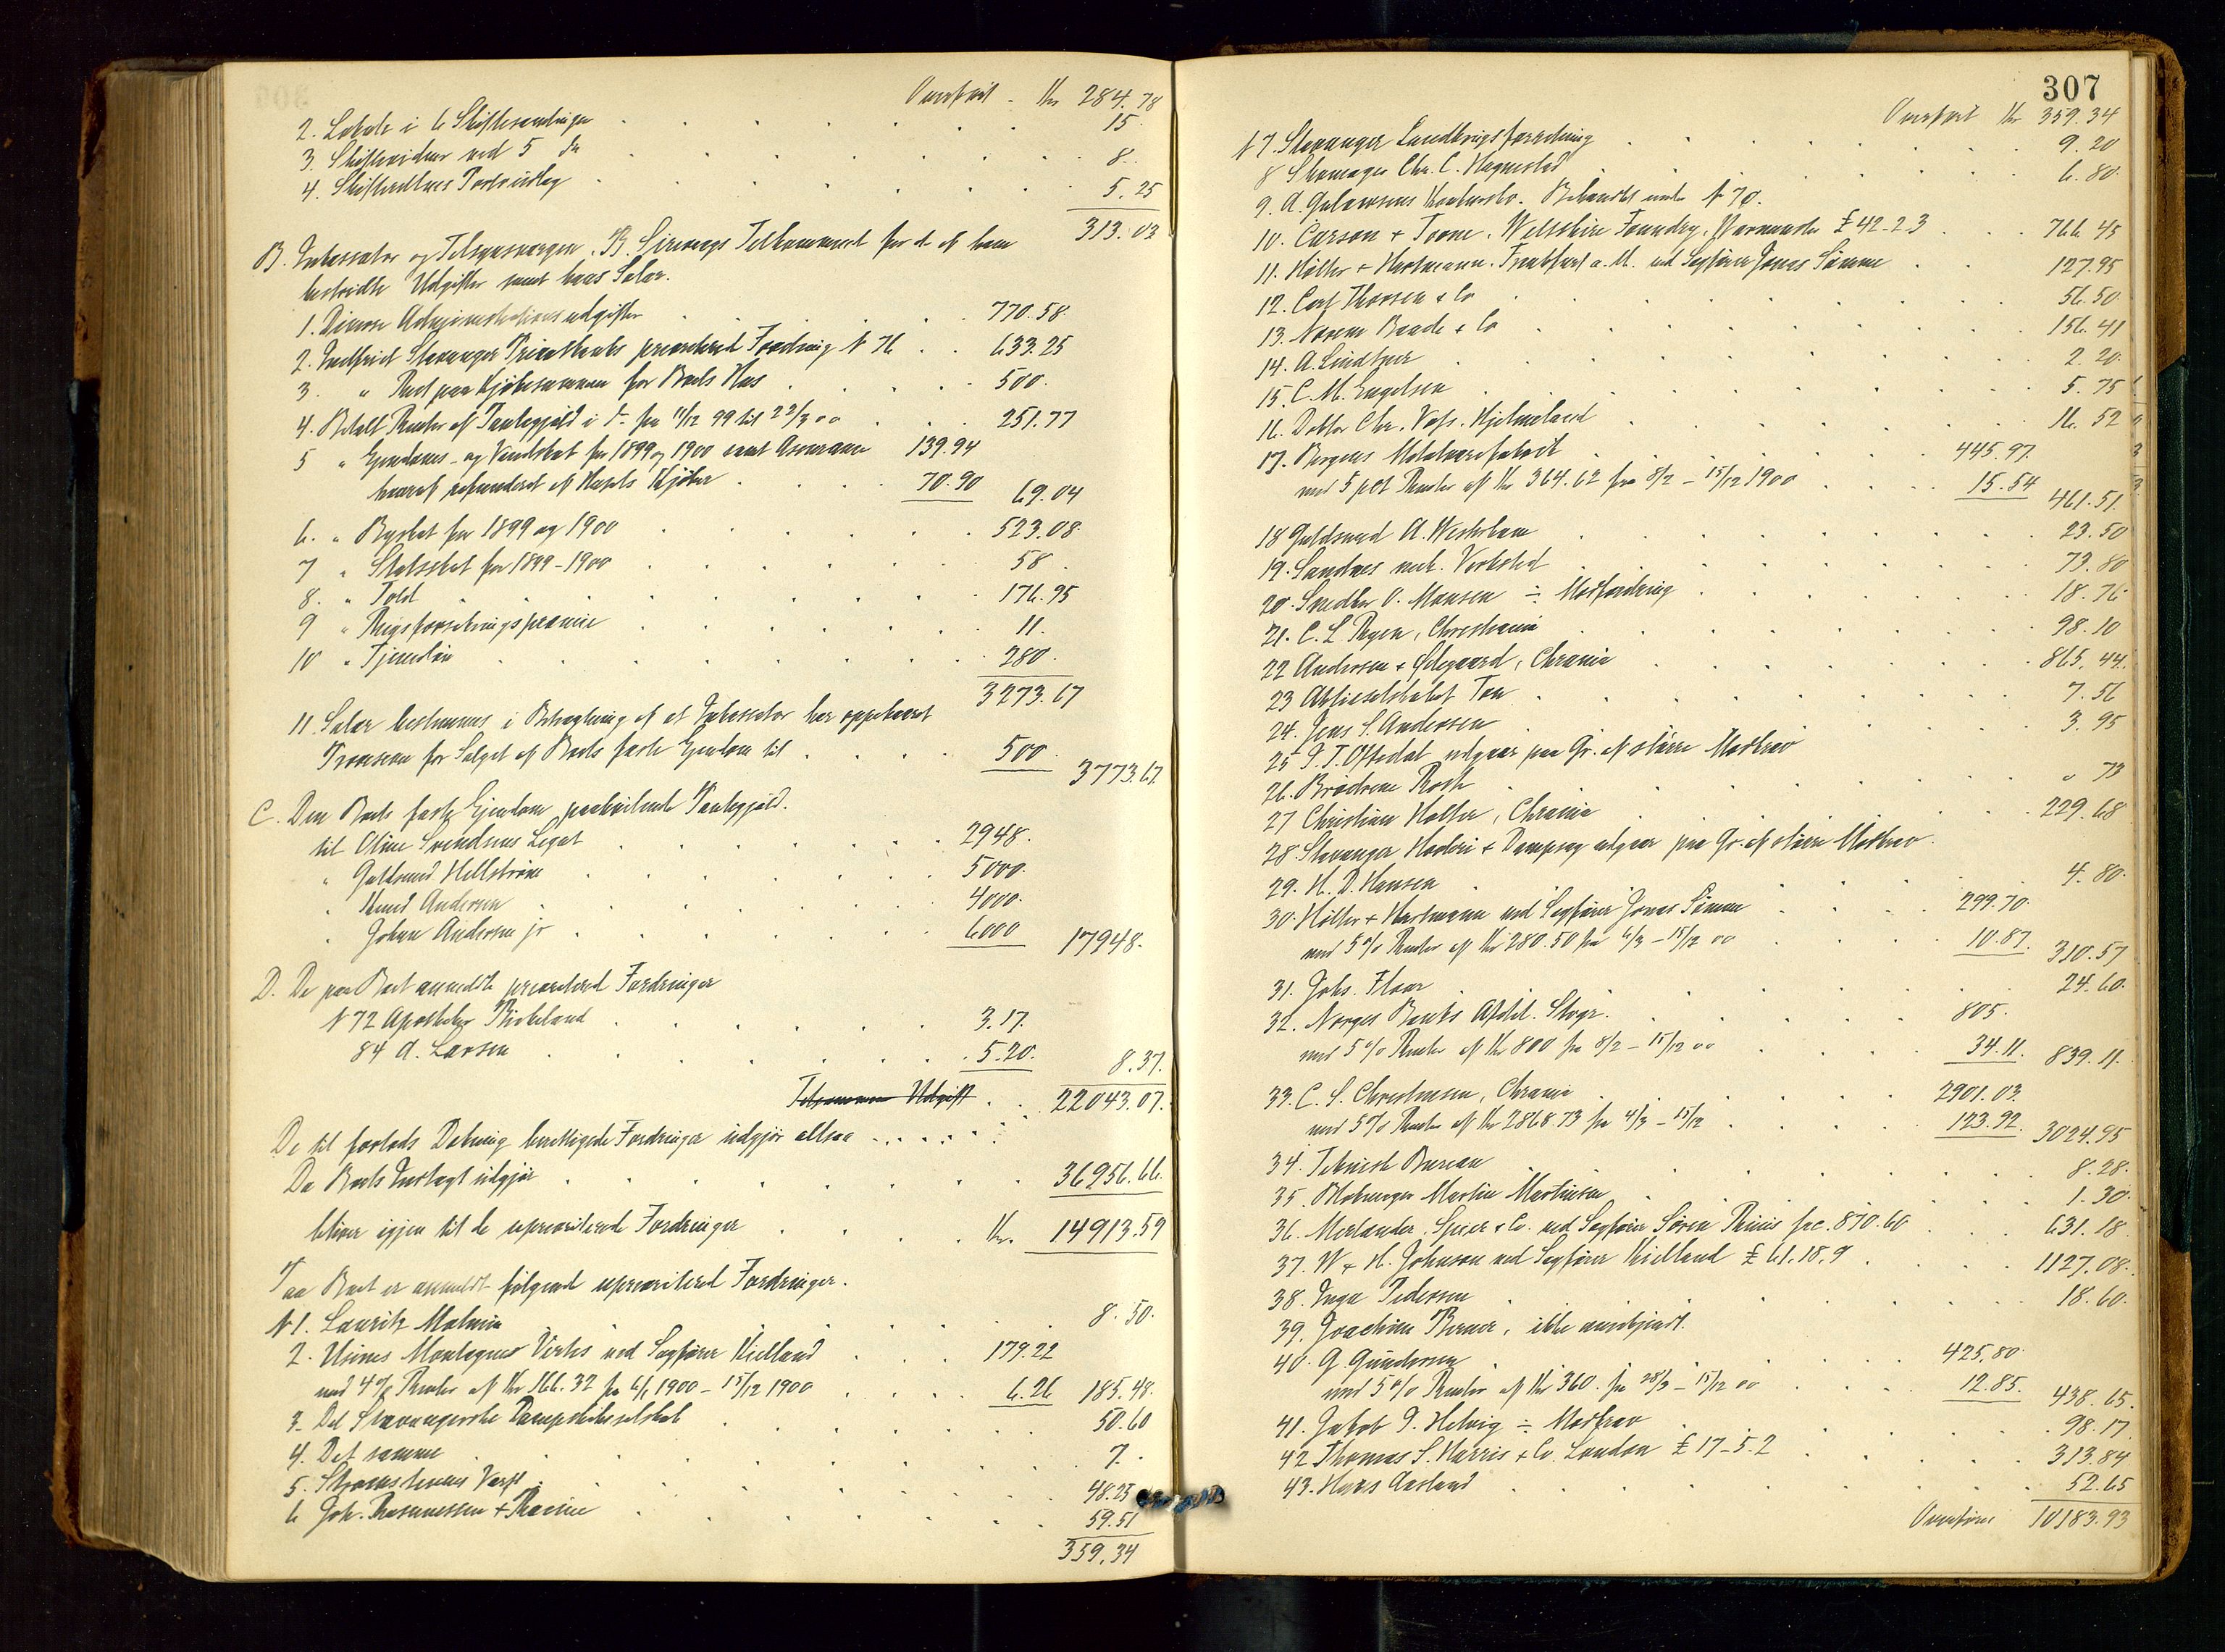 Overført - Kr 284.78
2. Lokale i 6 Skiftesamlinger 15.
3. Skiftevidner ved 5 do 8.
4. Skifterettens Portoudlæg 5.25
313.03
B. Inkassator og Tilsynsmægen B. Sirevaags Tilkommende for de af ham
bestridte Udgifter samt hans Salær.
1. Diverse Administrationsudgifter 770.58.
2. Indfriet Stavanger Privatbanks prioriterede Fordring N 76 633.25
3. " Rest paa Kjøbesummen for Boets Hus 500.
4. Betalt Renter af Pantegjæld i do fra 11/12 99 til 22/3 00 251.77
5 " Eiendoms- og Vandskat for 1899 og 1900 samt Assurance 139.94
hvoraf refunderet af Husets Kjøber 70.90 69.04
6. " Byskat for 1899 og 1900 523.08.
7 " Statsskat for 1899-1900 58.
8. " Told 176.95
9 " Rigsforsikringspræmie 11.
10 " Tjenerløn 280.
3273.67
11. Salær bestemmes i Betragtning af at Inkassator har oppebaaret
Provision for Salget af Boets faste Eiendom til 500. 3773.67
C. Den Boets faste Eiendom paahvilende Pantegjæld.
til Oline Svendsens Legat 2948.
" Guldsmed Hellstrøm 5000.
" Knud Andersen 4000.
" Johan Andersen jr 6000 17948.
D. De paa Boet anmeldte prioriterede Fordringer
N 72 Apotheker Birkeland 3.17.
84 A. Larsen 5.20. 8.37.
Tilsammen Udgift 22043.07.
De til forlods Dækning berettigede Fordringer udgjør altsaa
Da Boets Indtægt udgjør 36956.66.
bliver igjen til de uprioriterede Fordringer Kr. 14913.59
Paa Boet er anmeldt følgende uprioriterede Fordringer.
N 1. Lauritz Malmin 8.50.
2. Usines Montagnes Vertes ved Sagfører Kielland 179.22
med 4% Renter af Kr 166.32 fra 6/1 1900 - 15/12 1900 6.26 185.48.
3. Det Stavangerske Dampskibsselskab 50.60
4. Det samme 7.
5. Strømsteens Værft 48.25
6 Joh. Rasmussen & Racine 59.51
359.34
307
Overført Kr 359.34
N 7. Stavanger Landbrugsforretning 9.20
8 Skomager Chr. C. Hagnestad 6.80.
9. A. Gulowsens Konkursbo. Behandles under N 70.
10. Carson & Toone. Wiltshire Foundry, Warminster £ 42-2-3 766.45
11. Hölter & Hartmann. Frankfurt a. M. ved Sagfører Jonas Sömme 127.95
12. Carl Thorsen & Co 56.50
13. Norem Baade & Co 156.41
14. A. Lindtner 2.20.
15. C. M. Engelsen 5.75
16. Doktor Chr. Vafs. Hjelmeland 16.52
17. Bergens Metalvarefabrik 445.97.
med 5 pct Renter af Kr 364.62 fra 8/2 - 15/12 1900 15.54 461.51.
18 Guldsmed A. Westerbom 23.50
19. Sandnes mek. Verksted 73.80
20. Snedker O. Monsen ÷ Modfordring 18.76
21. C. L Ryen, Christiania 98.10
22 Andresen & Ødegaard, Chrania 865.44.
23 Aktieselskabet Ton 7.56
24. Jens S. Andersen 3.95
25 P. T. Oftedal udgaar paa Gr. af større Modkrav
26. Brødrene Rosk " 73
27 Christian Holter, Chrania 229.68
28. Stavanger Høvleri & Dampsag udgaar paa Gr. af større Modkrav.
29. H. D. Hansen 4.80.
30. Hölter & Hartmann ved Sagfører Jonas Sömme 299.70.
med 5% Renter af Kr 280.50 fra 6/3 - 15/12 00 10.87. 310.57
31. Johs. Floor 24.60.
32. Norges Banks Afdel. Stvgr. 805.
med 5% Renter af Kr 800 fra 8/2 - 15/12 00 34.11. 839.11.
33. C. S. Christensen, Chrania 2901.03.
med 5% Renter af Kr 2868.73 fra 4/3 - 15/12 123.92. 3024.95
34. Teknisk Bureau 8.28.
35. Møbelmager Martin Martinsen 1.30.
36. Merlander, Speer & Co. ved Sagfører Søren Riniis frc. 870.60 631.18
37. W & H. Johnson ved Sagfører Kielland £ 61.18.9 1127.08.
38. Inga Pedersen 18.60.
39. Joachim Berner, ikke anerkjendt.
40. G. Gundersen 425.80.
med 5% Renter af Kr 360. fra 28/3 - 15/12 00 12.85. 438.65.
41. Jakob P. Helvig ÷ Modkrav 98.17
42 Thomas S. Harris & Co. London £ 17-5.2 313.84
43. Hans Aasland 52.65
Overføres 10183.93